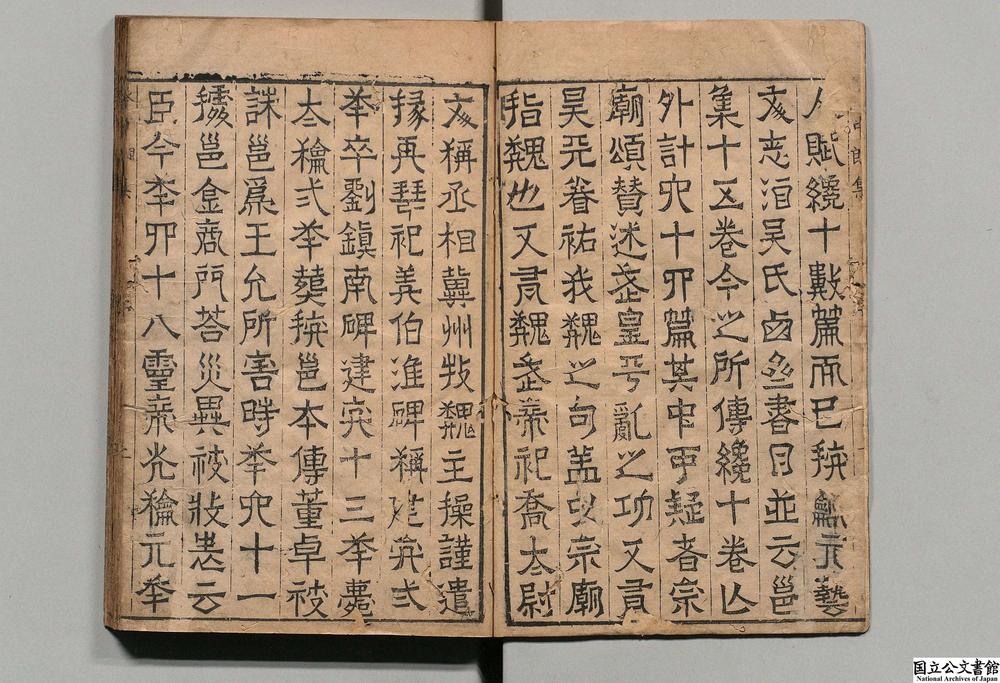 人賦纔十數篇而已按元藝
文志洎吳氏西齋書目並云邕
集十五卷今之所傳纔十卷亡
外計六十四篇其中可疑者宗
廟頌贊述武皇平亂之功又有
昊天眷祐我魏之句蓋以宗廟
指魏也又有魏武帝祀喬太尉
文稱丞相冀州牧魏主操謹遣
掾再拜祀姜伯淮碑稱建安弍
年卒劉鎮南碑建安十三年薨
太和弍年葬按邕本傳董卓被
誅邕為王允所害時年六十一
據邕金商門荅災異被收表云
臣今年四十八靈帝光和元年
国立公文書館
National Archives of Japan